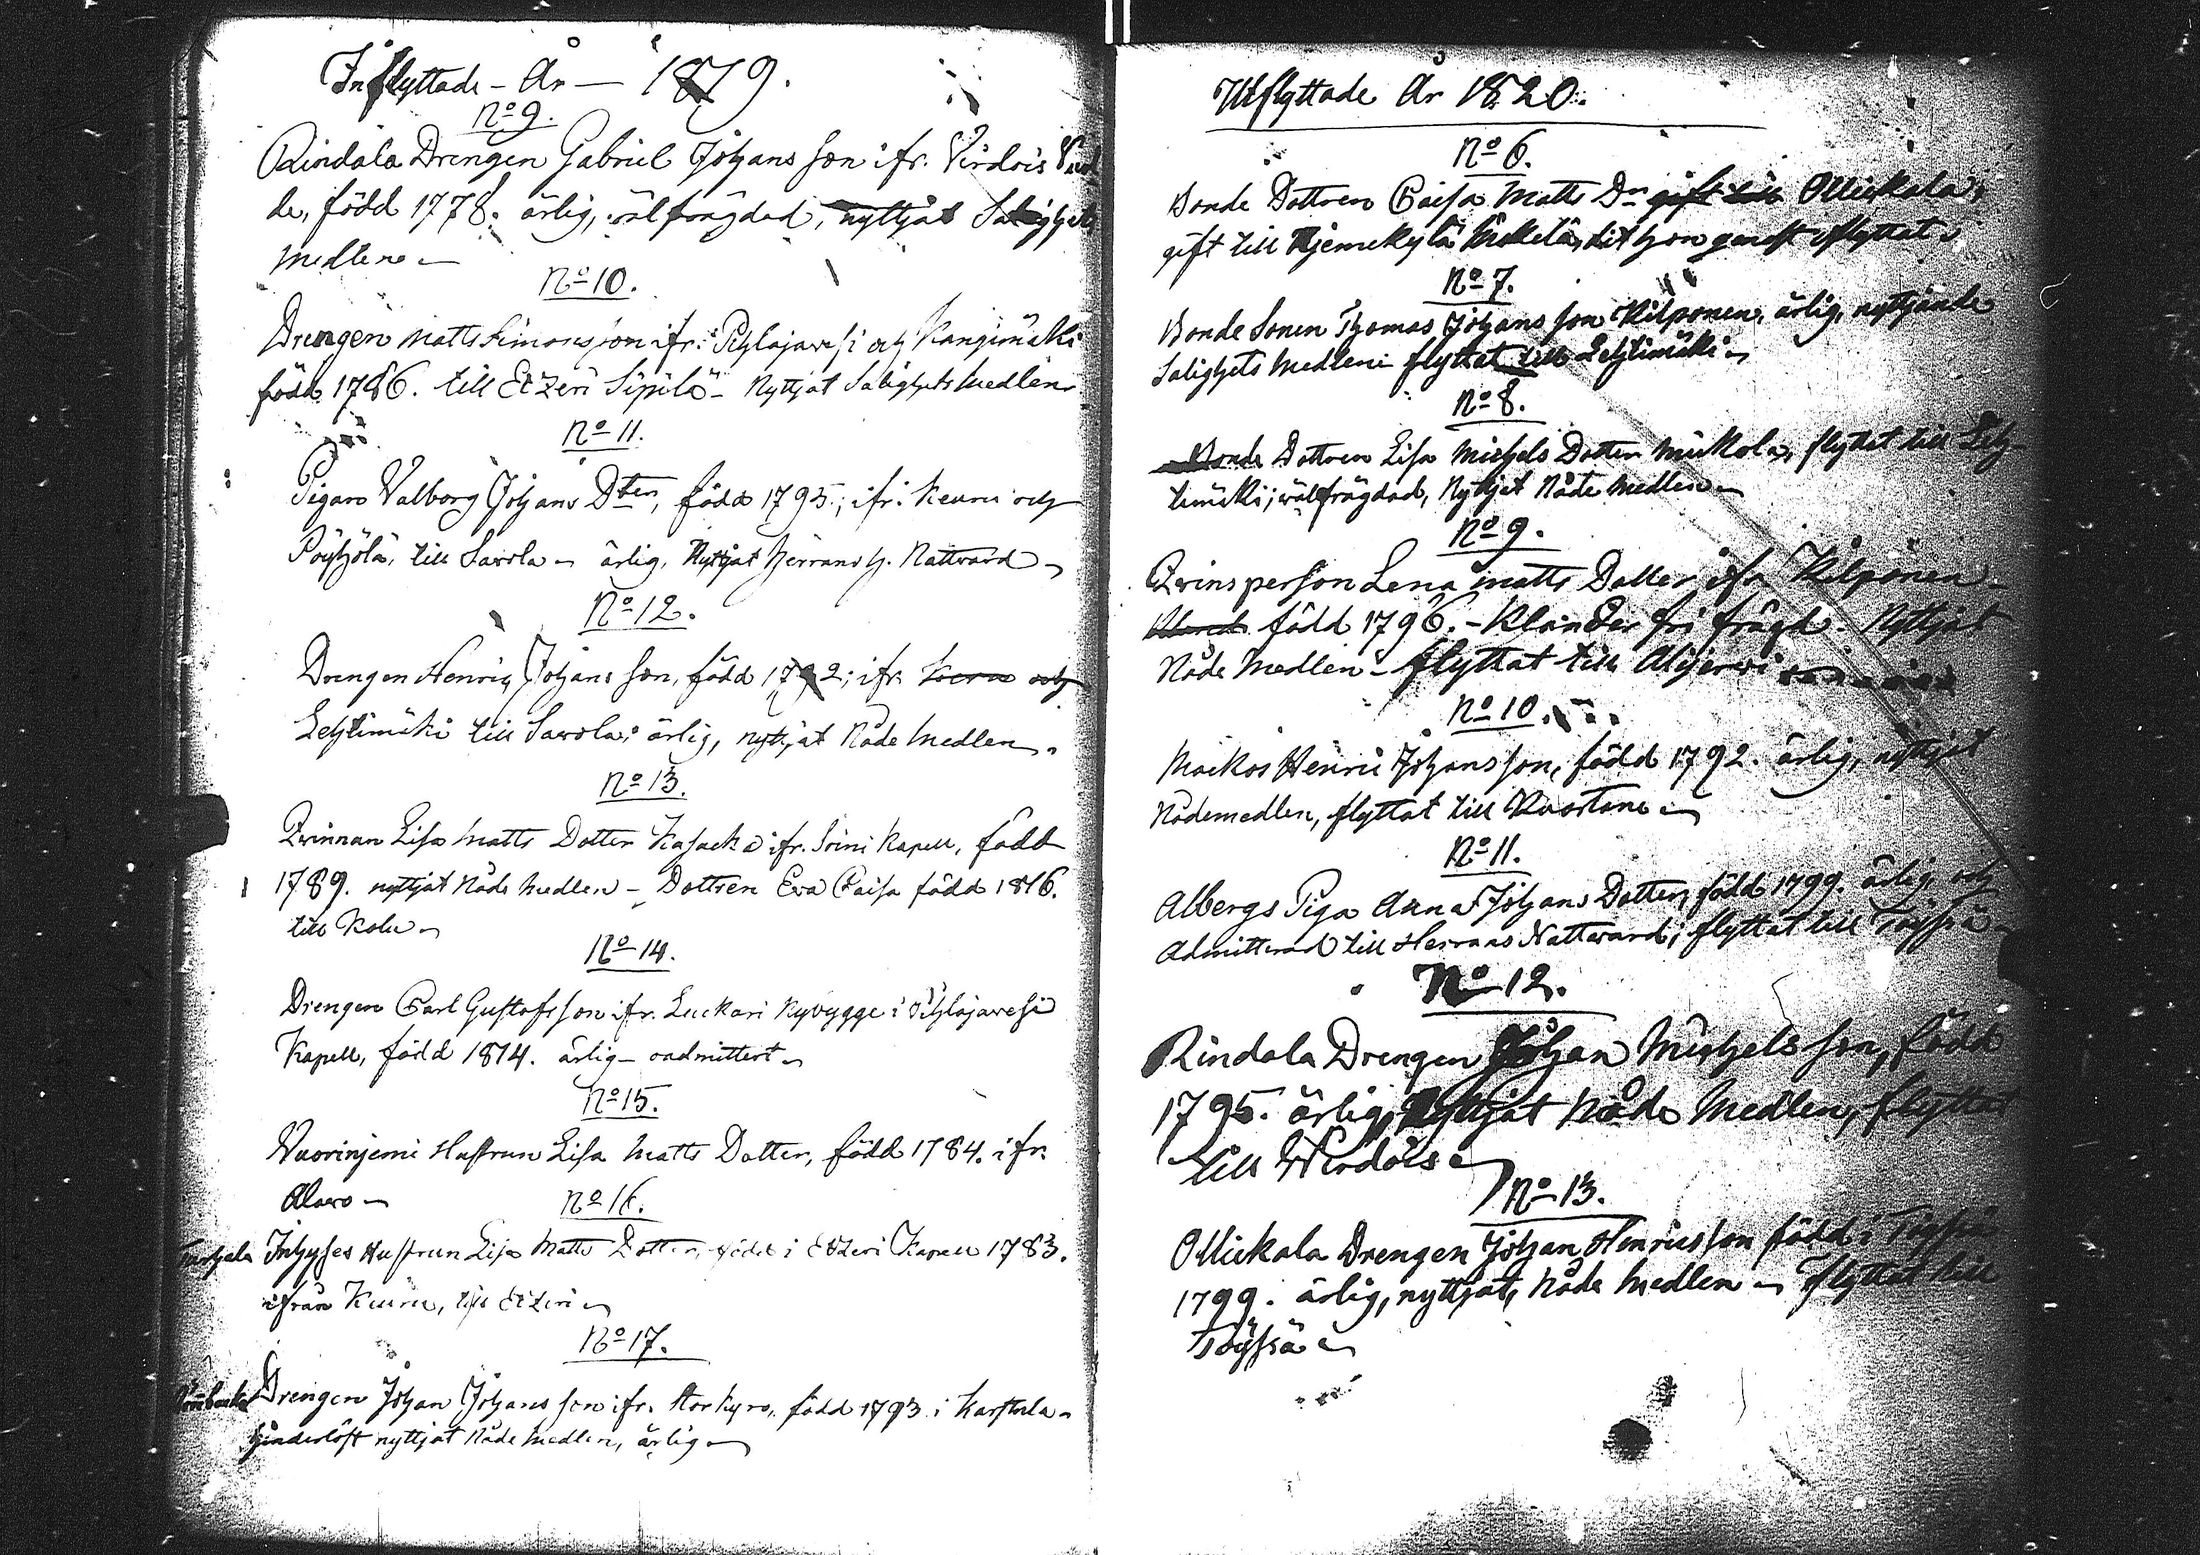 Inflyttade - År - 1819.
No 9.
Rindala Drengen Gabriel Johans son ifr. Virdois
de, född 1778. ärlig, välfrägdad, nyttjat Salighets
medlene
No 10.
Drengen Matts Simonsson ifr. Pihlajavesi och Kangimäki
född 1786. till Etzeri Sipilä - Nyttjat Salighets medlen
No 11.
Pigan Valborg Johans Dten, född 1795; ifr. Keuru och
till Savola - ärlig, Nyttjat Herrans H. Nattvard
No 12.
Drengen Henric Johans son, född 1792; ifr. och
Lehtimäki till Savola; ärlig, nyttjat Nåde medlen.
No 13.
Qvinnan Lisa Matts Dotter ifr. Soini Kapell, född
1789. nyttjat Nåde medlen - Dottren Eva Caisa född 1816.
till Kolu
No 14.
Drengen Carl Gustafs son ifr. Luckari Nybygge i Pihlajavesi
Kapell, född 1814. ärlig - oadmittert
No 15.
Vuorinjemi Hustrun Lisa Matts Dotter, född 1784. ifr.
Alavo
No 16.
Inhyses Hustrun Lisa Matts Dotter, född i Etzeri Kapell 1783.
ifrån Keuru, till Etzeri
No 17.
Drengen Johan Johans son ifr. Storkyro, född 1793 i Karstula
hinderlöst nyttjat Nåde medlen, ärlig
Utflyttade År 1820.
No 6.
Bonde Dottren Caisa Matts Dr gift till Ollickala,
gift till dit hon genast flyttat
No 7.
Bonde Sonen Thomas Johans son Kilponen, ärlig, nyttjande
Salighets medlene flyttat till Lehtimäki
No 8.
Bonde Dottren Lisa Michels Dotter Mickola, flyttat till Leh
timäki; välfrägdad, Nyttjat Nåde medlen
No 9.
Qvinsperson Lena Matts Dotter ifrn Kilponen
född 1796. - Klander fri frägd. Nyttjat
Nåde medlen - flyttat till Alajervi
No 10.
Henric Johans son, född 1792. ärlig, nyttjat
Nådemedlen, flyttat till Kuortane
No 11.
Albergs Piga Anna Johans Dotter, född 1799. ärlig, och
Admitterad till Herrans Nattvard; flyttat till Töyssä
No 12.
Rindala Drengen Johan Michels son, född
1795. ärlig, Nyttjat Nåde Medlen, flyttat
till Virdois
No 13.
Ollickala Drengen Johan Henricsson född i Töyssä
1799. ärlig, nyttjat, Nåde medlen - flyttat till
Töyssä